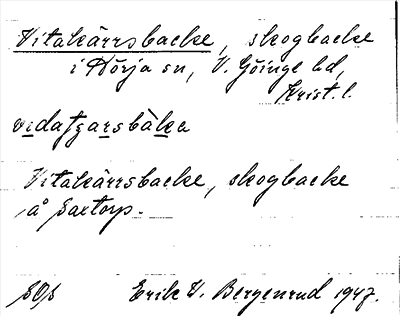 Vitakärrsbacke, skogbacke
i Nörja sn, V. Göinge hd,
Krist. l.
vidatɟarsbàka
Vitakärrsbacke, skogbacke
å Saxtorp.
SOS Erik V. Bergenrud 1947.